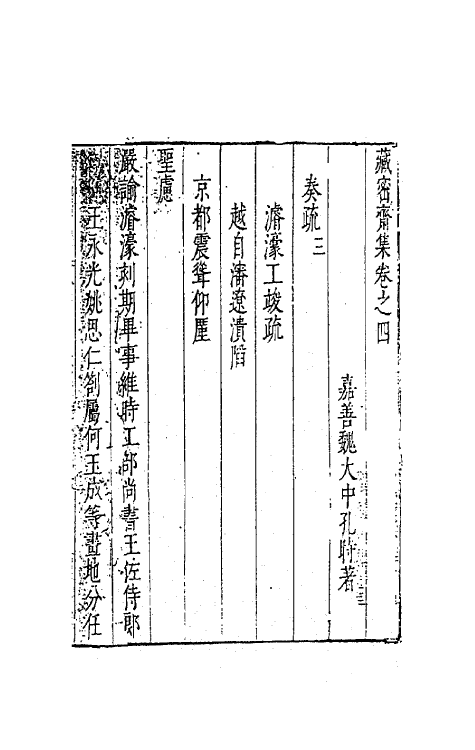 藏密齋集卷之四
嘉善魏大中孔時著
奏疏三
濬濠工竣疏
越自瀋遼潰陷
京都震聳仰厪
聖慮
嚴諭濬濠刻期畢事維時工部尚書王佐侍郎
王永光姚思仁劄屬何玉成等畫地分任